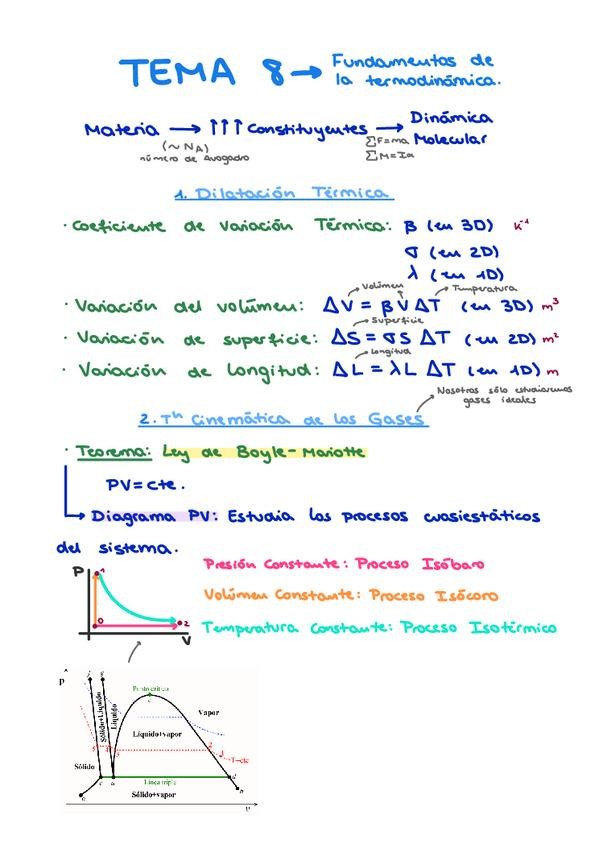 TEMA 8 → Fundamentos de
la termodinámica.
Materia → ↑↑↑ Constituyentes → Dinámica
Molecular
(~ NA)
número de Avogadro
ΣF=ma
ΣM=Iα
1. Dilatación Térmica
· Coeficiente de Variación Térmica: β (en 3D) K⁻¹
σ (en 2D)
λ (en 1D)
Volúmen
Temperatura
· Variación del volúmen: ΔV = βV ΔT (en 3D) m³
Superficie
· Variación de superficie: ΔS = σS ΔT (en 2D) m²
Longitud
· Variación de longitud: ΔL = λL ΔT (en 1D) m
Nosotros sólo estudiaremos
gases ideales
2. Tª Cinemática de los Gases
· Teorema: Ley de Boyle-Mariotte
PV=cte.
Diagrama PV: Estudia los procesos cuasiestáticos
del sistema.
Presión Constante: Proceso Isóbaro
Volúmen Constante: Proceso Isócoro
Temperatura Constante: Proceso Isotérmico
P
1
0
2
V
P
Punto crítico
c
Sólido+Líquido
Líquido
Vapor
Líquido+vapor
T=cte
Sólido
Línea triple
d
Sólido+vapor
a
b
v